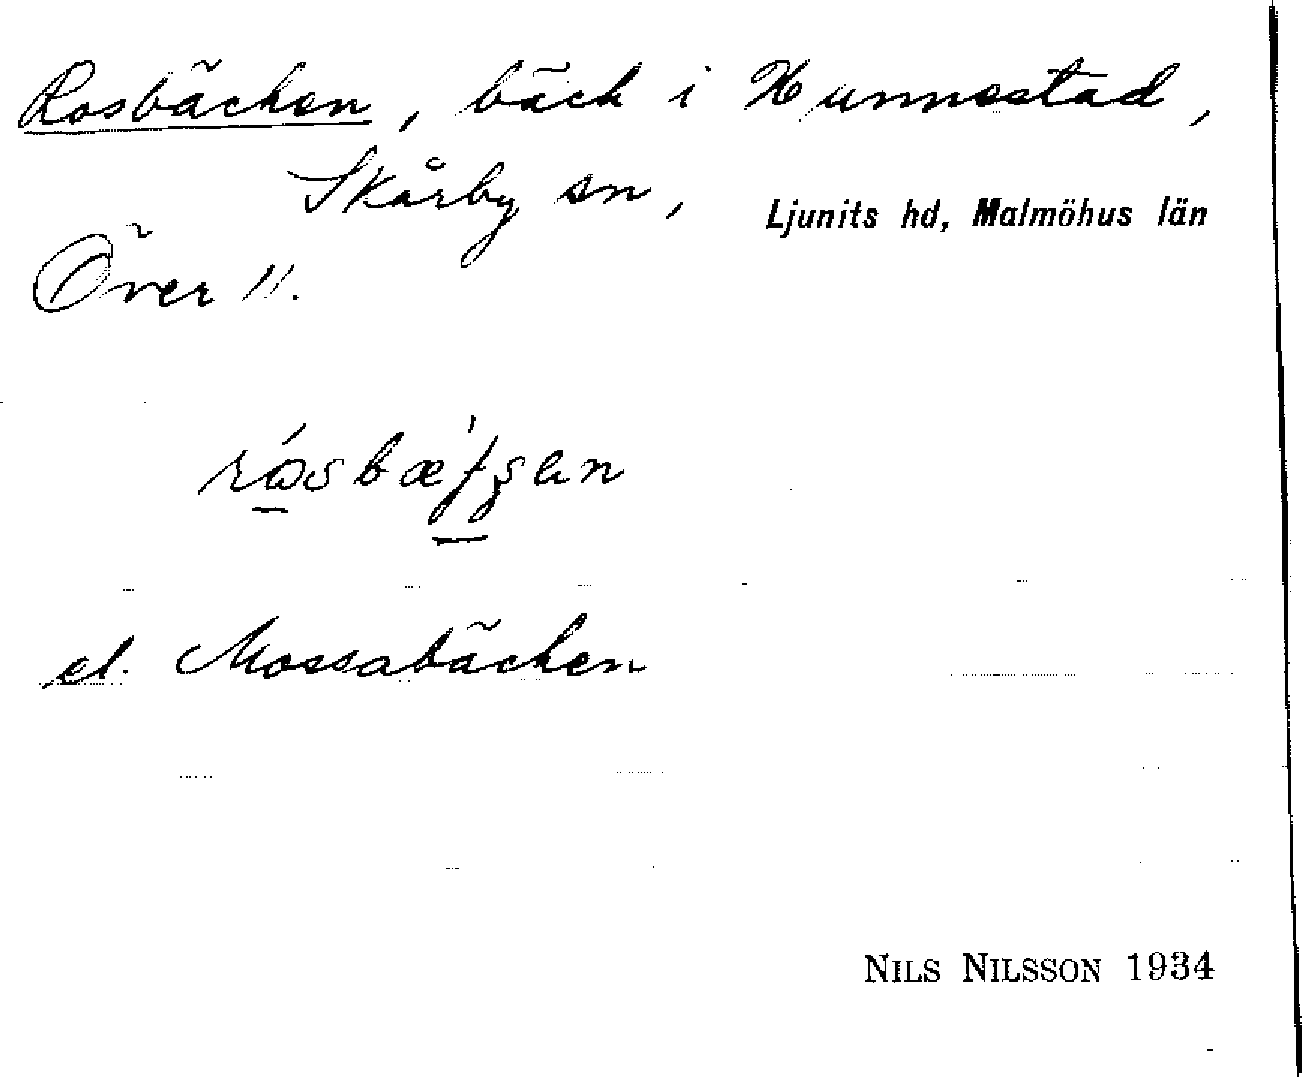 Rosbäcken, bäck i Hunnestad,
Skårby sn, Ljunits hd, Malmöhus län
Över 11.
el. Mossabäcken
NILS NILSSON 1934